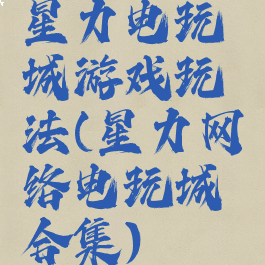 星力电玩
城游戏玩
法(星力网
络电玩城
合集)